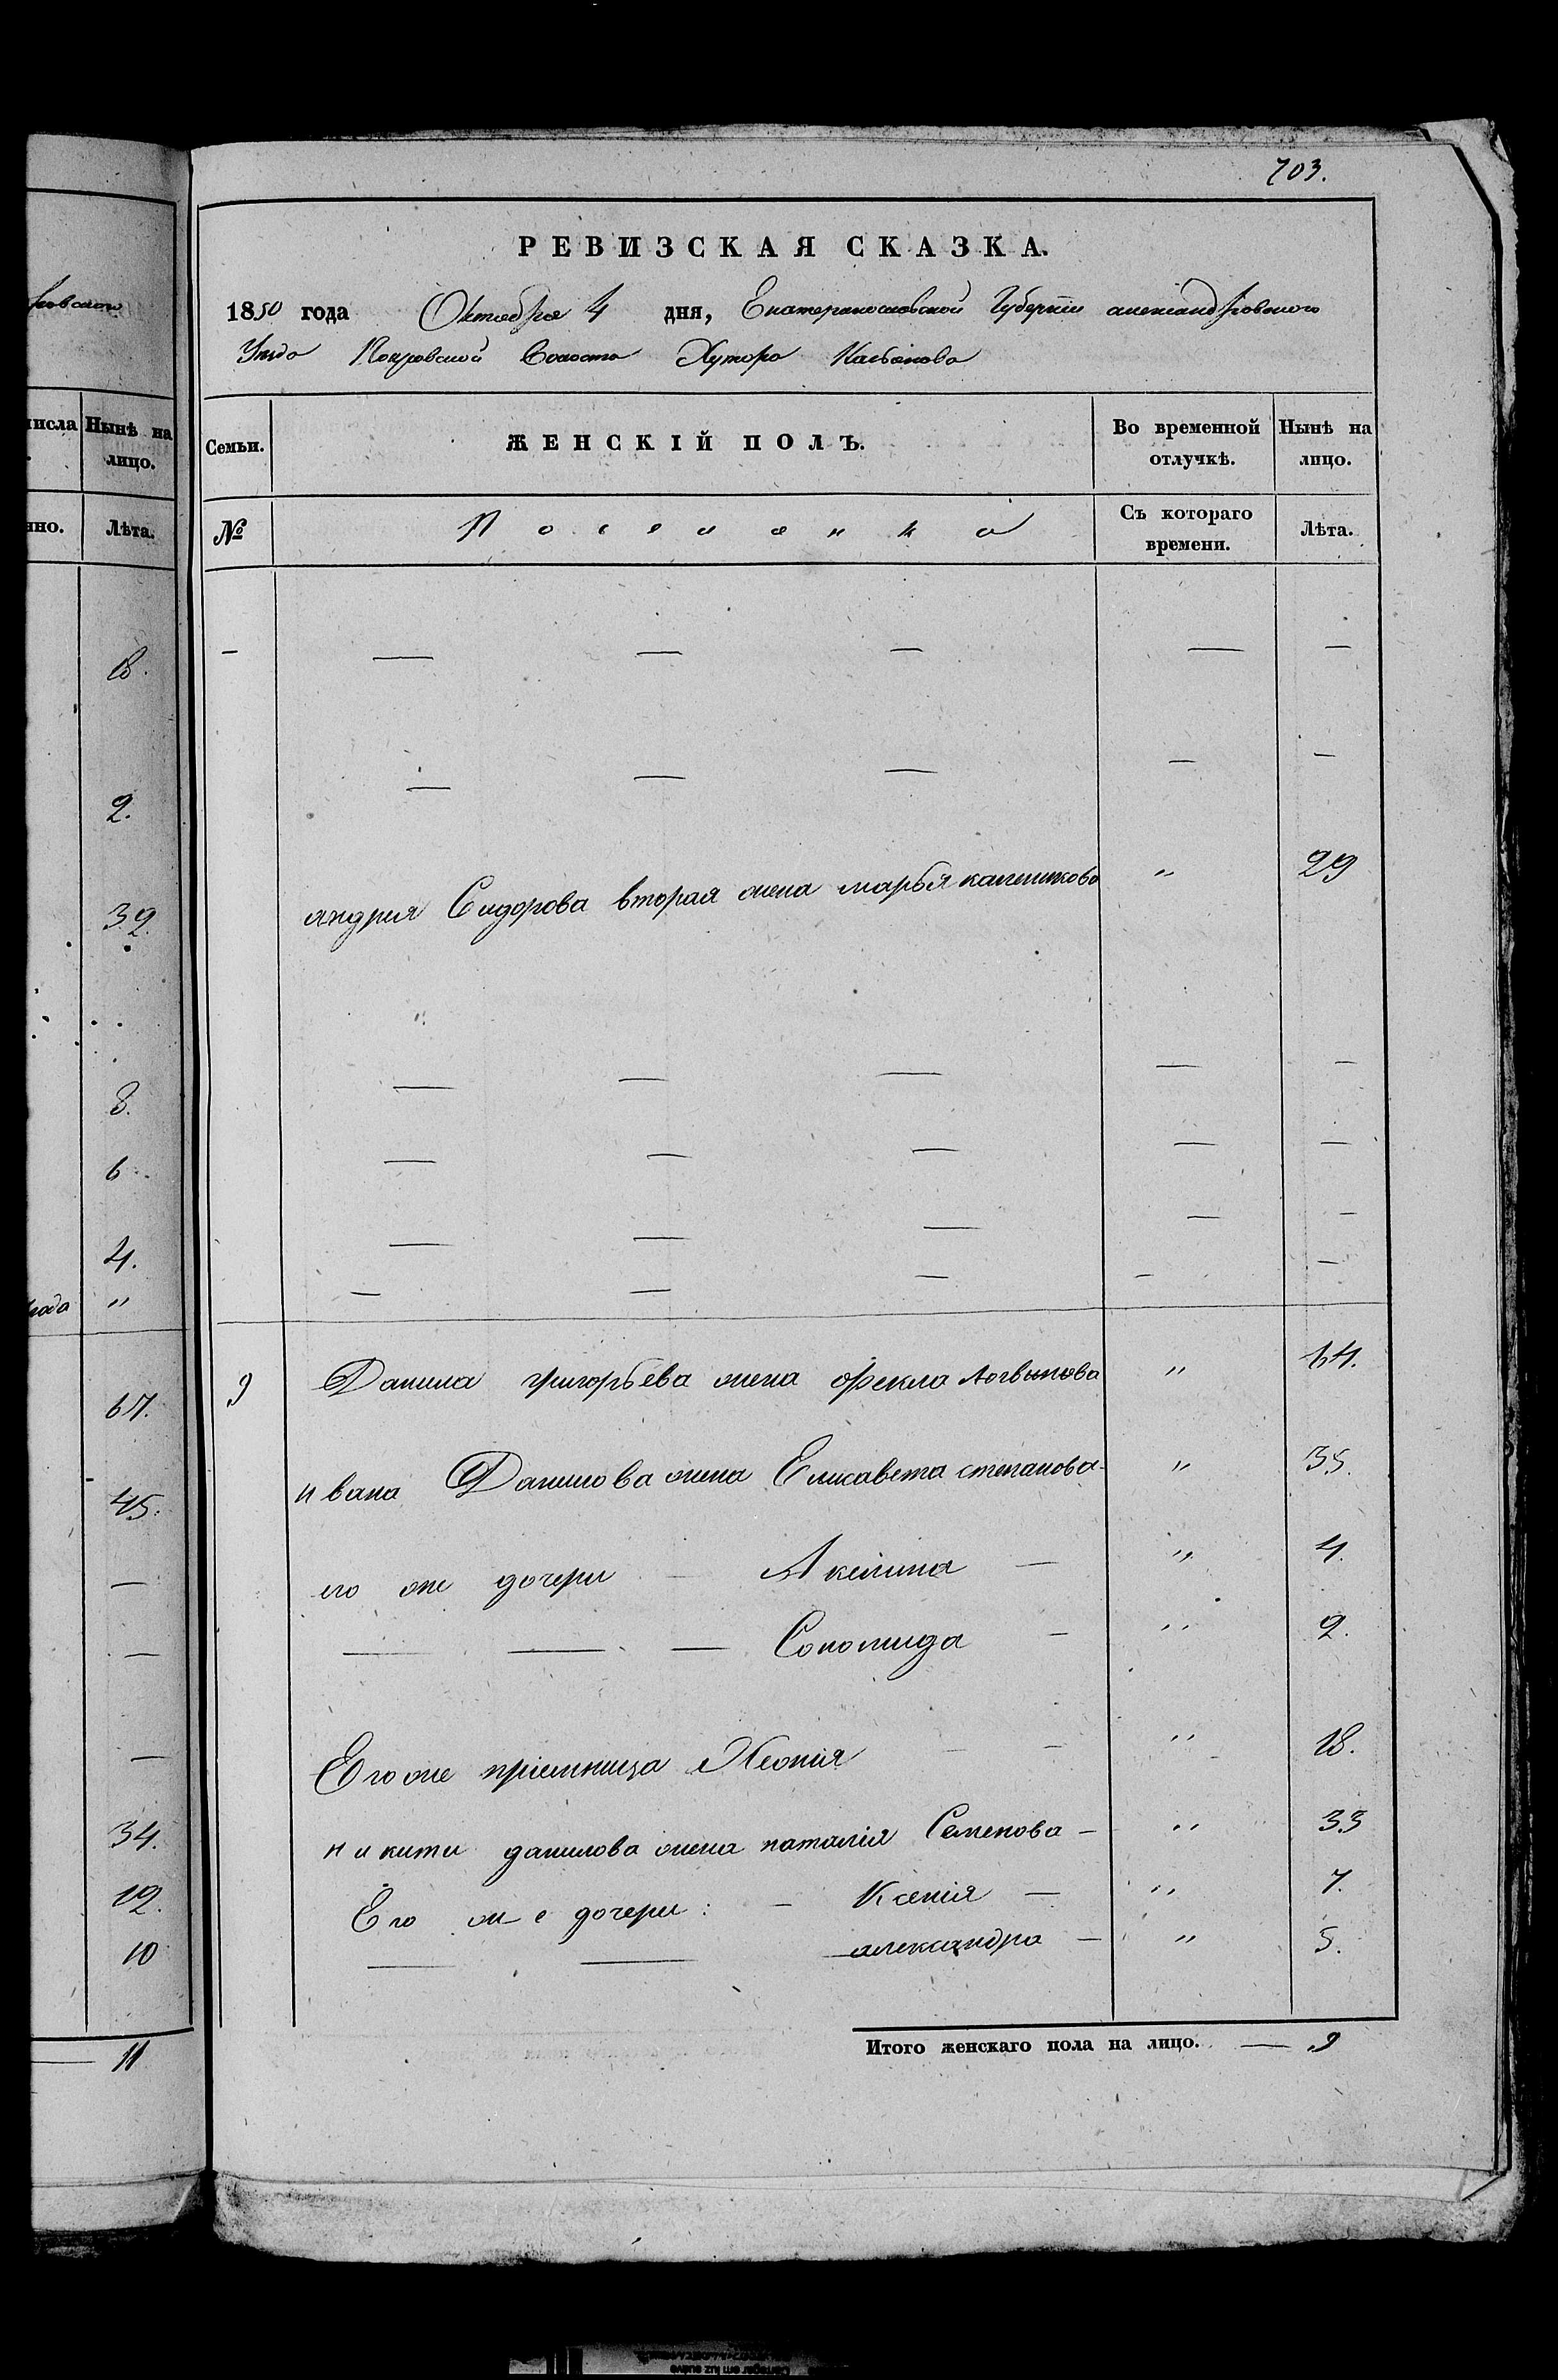 703.
РЕВИЗСКАЯ СКАЗКА.
1850 года Октября 4 дня, Екатеринославской Губернїи александровского
Уезда Покровской Волости Хутора Касьянова
Семьи.
ЖЕНСКІЙ ПОЛЪ.
Во временной отлучкѣ.
Нынѣ на лицо.
№
Поселенка
Съ котораго времени.
Лѣта.
— — — — — —
— — — — —
андрея Сидорова вторая жена марья каленикова " 29
— — — — —
— — — — —
— — — — —
— — — — —
9 Данила григорьева жена фекла логвынова " 64.
ивана Данилова жена Елисавета степанова " 35.
его же дочери Акилина — " 4.
— — — Соломида — " 2.
Его же прїемница Хеонїя — — " 18.
никити данилова жена наталїя Семенова — " 33
Его же дочери: — Ксенїя — " 7.
— — александра — " 5.
Итого женскаго пола на лицо. — 9
ровского
числа
Нынѣ на лицо.
нно.
Лѣта.
18.
2.
32.
8.
6.
4.
года "
67.
45.
—
—
—
34.
12.
10
— 11